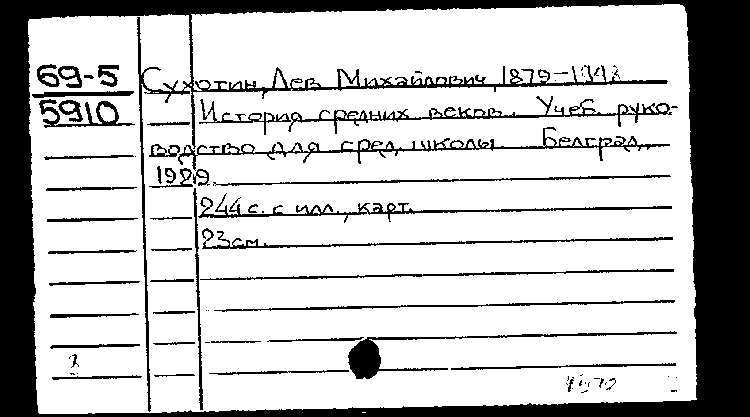 69-5 Сухотин, Лев Михайлович, 1879-1948
5910 История средних веков. Учеб. руко-
водство для сред. школы. Белград,
1929.
244 с. с илл., карт.
23 см.